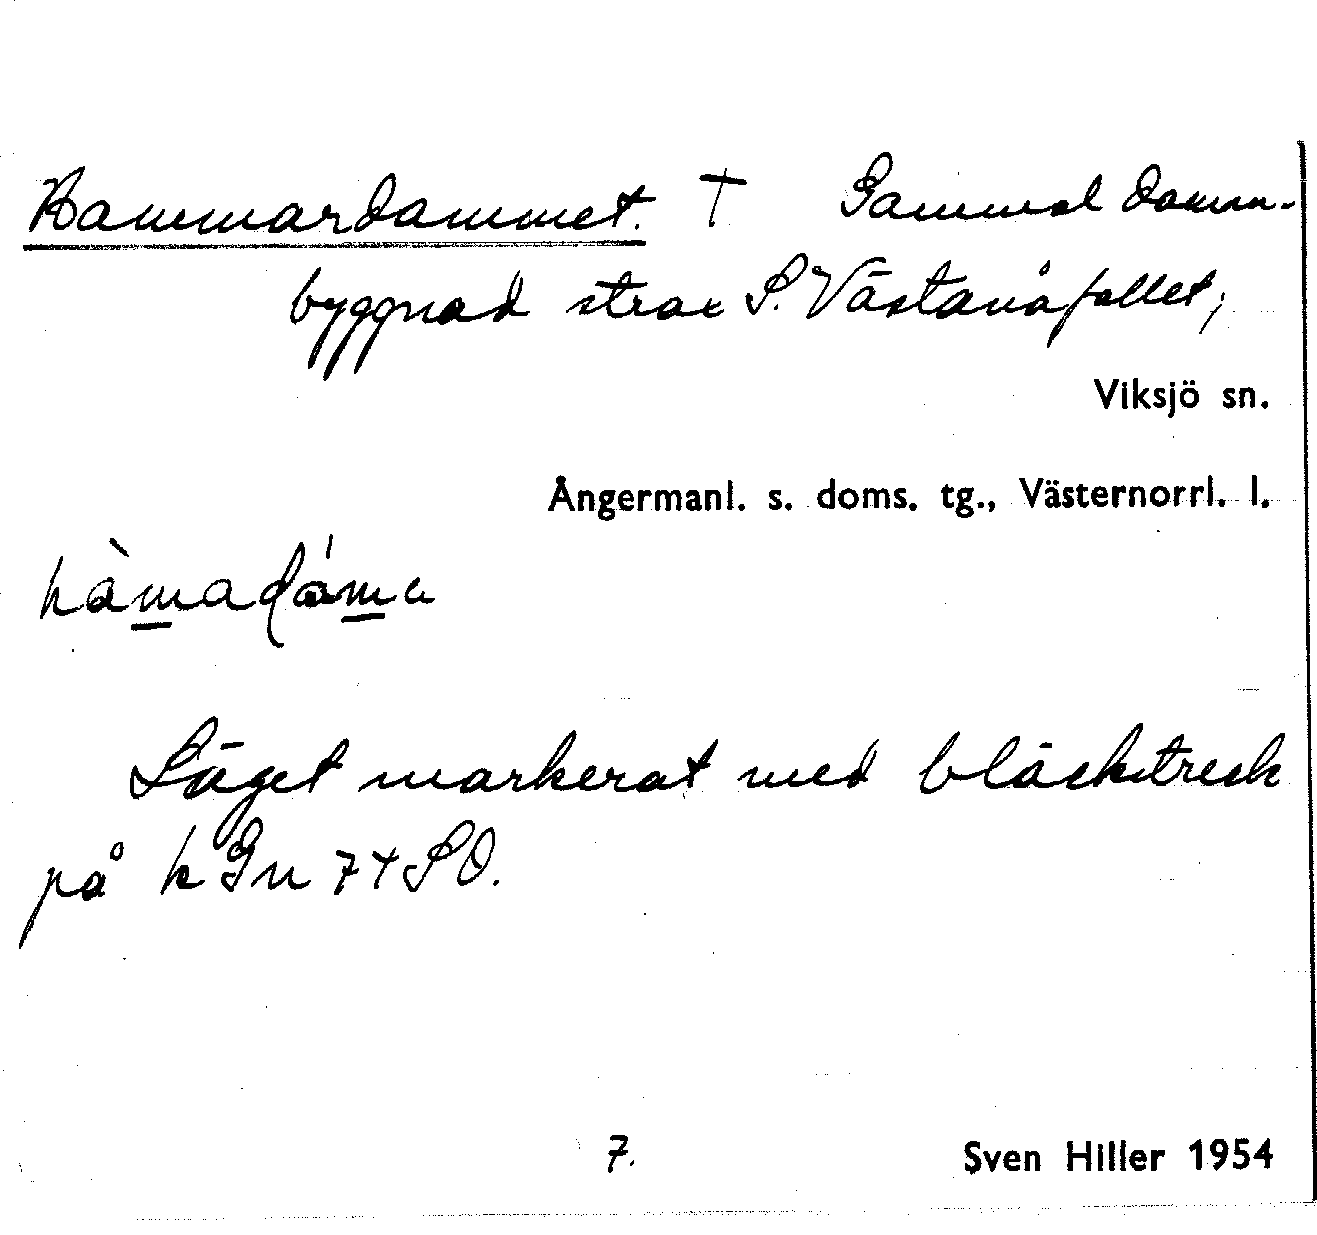 Hammardammet. † Gammal damm-
byggnad strax S. Västanåfallet,
Viksjö sn.
Ångermanl. s. doms. tg., Västernorrl. l.
hàm̲adám̲a
Läget markerat med bläckstreck
på kGn 74SO.
7.
Sven Hiller 1954